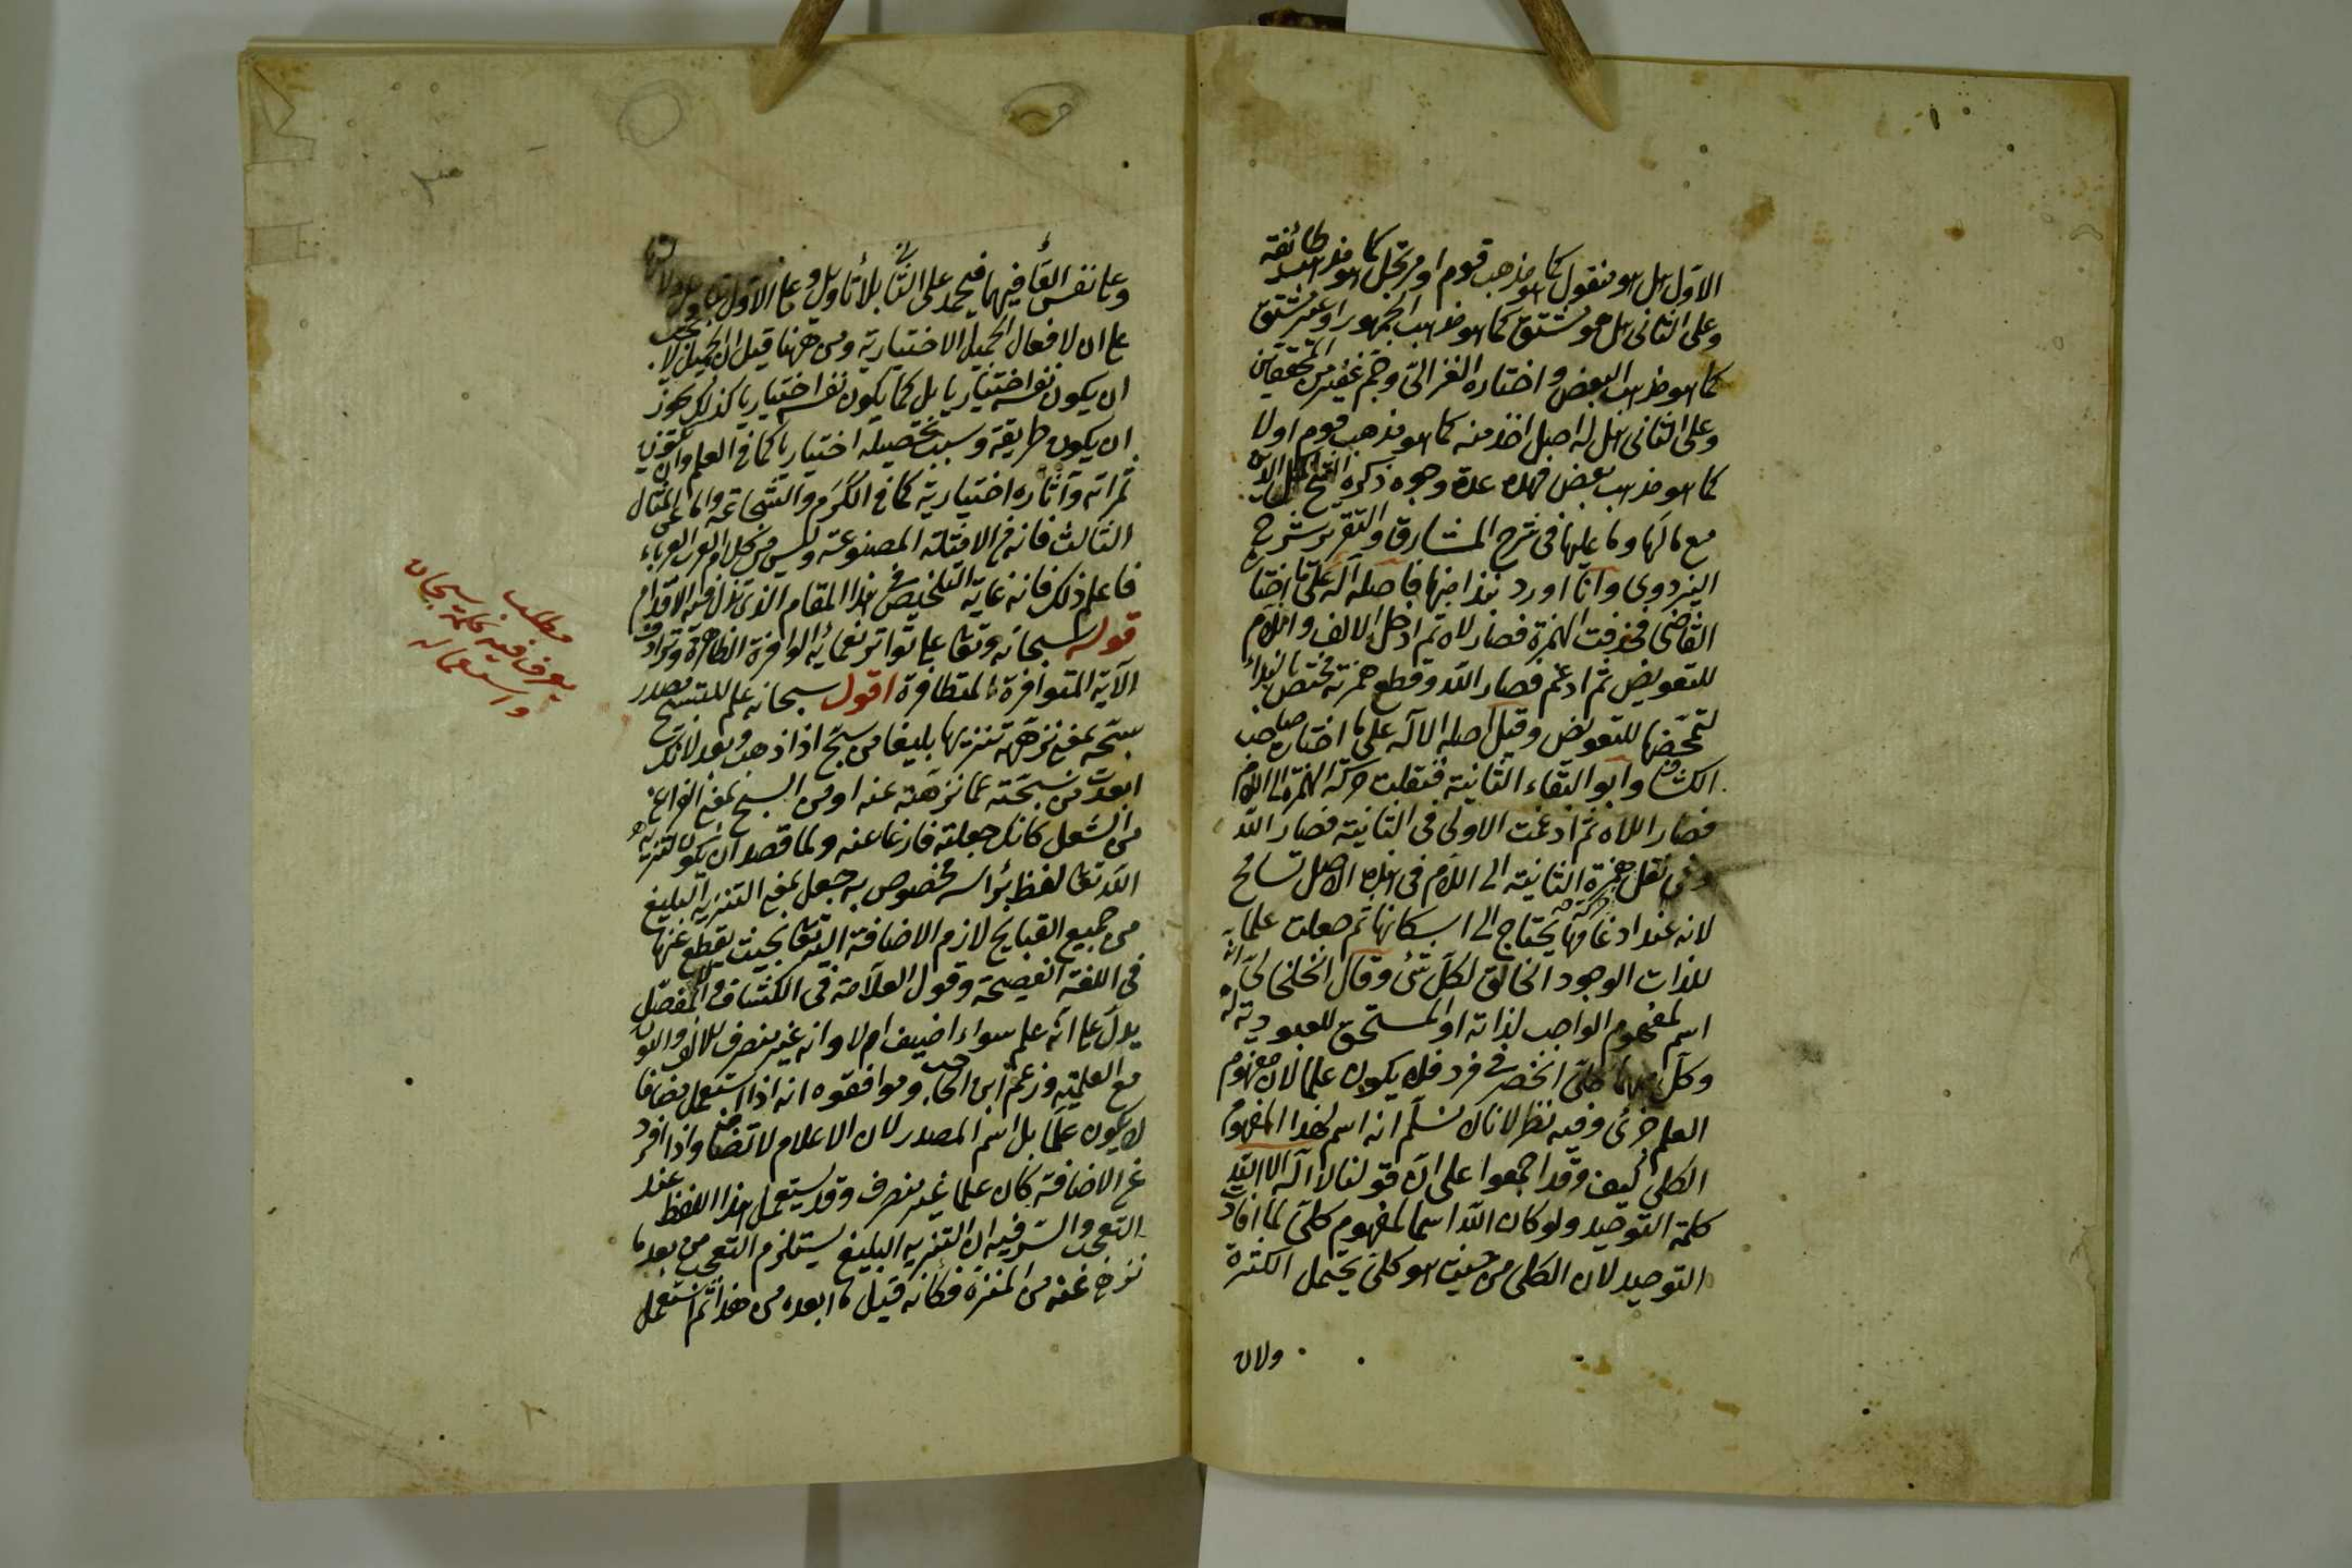 الاول هل هو منقول كما هو مذهب قوم او مرتجل كما هو مذهب طائفة
وعلى الثانى هل هو مشتق كما هو مذهب الجمهور او غير مشتق
كما هو مذهب البعض واختاره الغزالى وجم غفير من المحققين
وعلى الثانى هل له اصل اخذ منه كما هو مذهب قوم اولا
كما هو مذهب بعض فهذه عدة وجوه ذكره الشيخ اكمل الدين
مع مالها وما عليها فى شرح المشارق والتقرير شرح
البزدوى وانا اورد نبذا منها فاصله آله على ما اختاره
القاضى فحذفت الهمزة فصار لاه ثم ادخل الالف واللام
للتعويض ثم ادغم فصار الله وقطع همزته مختص بالنداء
لتمحضها للتعويض وقيل اصله الاله على ما اختاره صاحب
الكشاف وابو البقاء الثانية فنقلت حركة الهمزة الى اللام
فصار اللاه ثم ادغمت الاولى فى الثانية فصار الله
وفى نقل حركة همزة الثانية الى اللام فى هذه الاصل تسامح
لانه عند ادغامها يحتاج الى اسكانها ثم جعلت علما
للذات الوجود الخالق لكل شئ وقال الخلخالى انه
اسم لمفهوم الواجب لذاته او المستحق للعبودية له
وكل منهما كلى انحصر فى فرد فلا يكون علما لان مفهوم
العلم جزئى وفيه نظر لانا لا نسلم انه اسم لهذا المفهوم
الكلى كيف وقد اجمعوا على ان قولنا لا اله الا الله
كلمة التوحيد ولو كان الله اسما لمفهوم كلى لما افاد
التوحيد لان الكلى من حيث هو كلى يحتمل الكثرة
ولان
وعلى نفس القا فيها فيحمد على الثانى بلا تأويل وعلى الاول
على ان لافعال الجميل الاختيارية ومن ههنا قيل ان الجميل لا يجب
ان يكون نفسه اختياريا بل كما يكون نفسه اختياريا كذلك يجوز
ان يكون طريقة وسبب تحصيله اختياريا كما فى العلم وان يكون
ثمراته وآثاره اختيارية كما فى الكرم والشجاعة واما على المثال
الثالث فانه من الامثلة المصنوعة وليس من كلام العرب العرباء
فاعلم ذلك فانه غاية التلخيص فى هذا المقام الذى تزل فيه الاقدام
قوله سبحانه وتعا على تواتر نعمائه الوافرة الظاهرة وترادف
الآية المتوافرة المتظافرة اقول سبحانه علم للتسبيح مصدر
سبحه بمعنى نزهه تنزيها بليغا من سبح اذا ذهب وبعد لانك
ابعدت من سبحته عما نزهته عنه او من السبح بمعنى الفراغ
من الشغل كانك جعلته فارغا عنه ولما قصد ان يكون لتنزيه
الله تعا لفظ برأسه مخصوص به جعل بمعنى التنزيه البليغ
من جميع القبايح لازم الاضافة اليه تعا بحيث يقطع عنها
فى اللغة الفصيحة وقول العلامة فى الكشاف والمفصل
يدل على انه علم سواء اضيف ام لا وانه غير منصرف للالف والنون
مع العلمية وزعم ابن الحاجب وموافقوه انه اذا استعمل مضافا
لا يكون علما بل اسم المصدر لان الاعلام لا تضاف واذا افرد
عن الاضافة كان علما غير منصرف وقد يستعمل هذا اللفظ عند
التعجب والسر فيه ان التنزيه البليغ يستلزم التعجب من بعد ما
نزه عنه من المنزه فكانه قيل ما ابعده من هذا ثم استعمل
مطلب
يعرف فيه كلمة سبحان
واستعماله